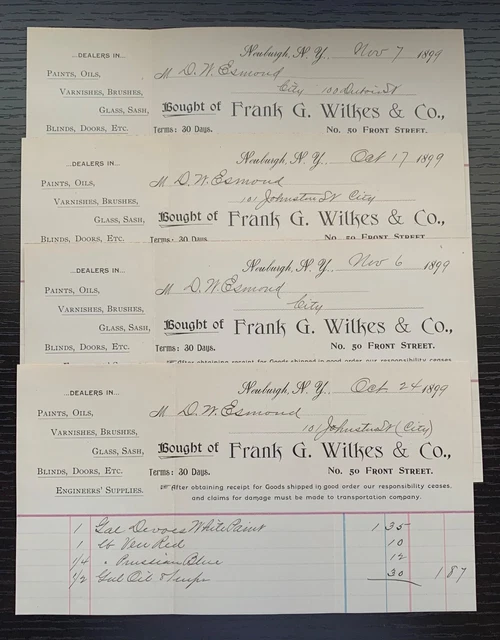 ...DEALERS IN...
PAINTS, OILS,
VARNISHES, BRUSHES,
GLASS, SASH,
BLINDS, DOORS, ETC.
Newburgh, N. Y., Nov 7 1899
M D. W. Esmond
City 100 St
Bought of Frank G. Wilkes & Co.,
Terms: 30 Days. No. 50 Front Street.
...DEALERS IN...
PAINTS, OILS,
VARNISHES, BRUSHES,
GLASS, SASH,
BLINDS, DOORS, ETC.
Newburgh, N. Y., Oct 17 1899
M D. W. Esmond
101 Johnston St City
Bought of Frank G. Wilkes & Co.,
Terms: 30 Days. No. 50 Front Street.
...DEALERS IN...
PAINTS, OILS,
VARNISHES, BRUSHES,
GLASS, SASH,
BLINDS, DOORS, ETC.
Newburgh, N. Y., Nov 6 1899
M D. W. Esmond
City
Bought of Frank G. Wilkes & Co.,
Terms: 30 Days. No. 50 Front Street.
After obtaining receipt for Goods shipped in good order our responsibility ceases
...DEALERS IN...
PAINTS, OILS,
VARNISHES, BRUSHES,
GLASS, SASH,
BLINDS, DOORS, ETC.
ENGINEERS' SUPPLIES.
Newburgh, N. Y., Oct 24 1899
M D. W. Esmond
101 Johnston St (City)
Bought of Frank G. Wilkes & Co.,
Terms: 30 Days. No. 50 Front Street.
After obtaining receipt for Goods shipped in good order our responsibility ceases,
and claims for damage must be made to transportation company.
1 Gal Devoes White Paint 1 35
1 lb Ven Red 10
1/4 " Prussian Blue 12
1/2 Gal Oil & Turps 30 1 87